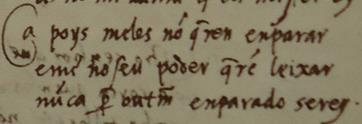 a poys meles nõ q̃ren enparar
emẽ nõ seu poder q̃rẽ leixar
nũca ꝑ outm̃ enparado serey.